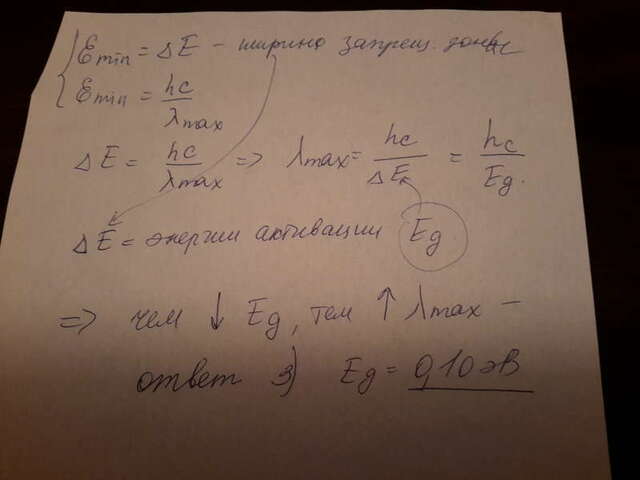 Emin = ΔE – ширина запрещ. зоны
Emin = hc/λmax
ΔE = hc/λmax => λmax = hc/ΔE = hc/Eg.
ΔE = энергии активации Eg
=> чем ↓ Eg, тем ↑ λmax –
ответ 3) Eg = 0,10 эВ